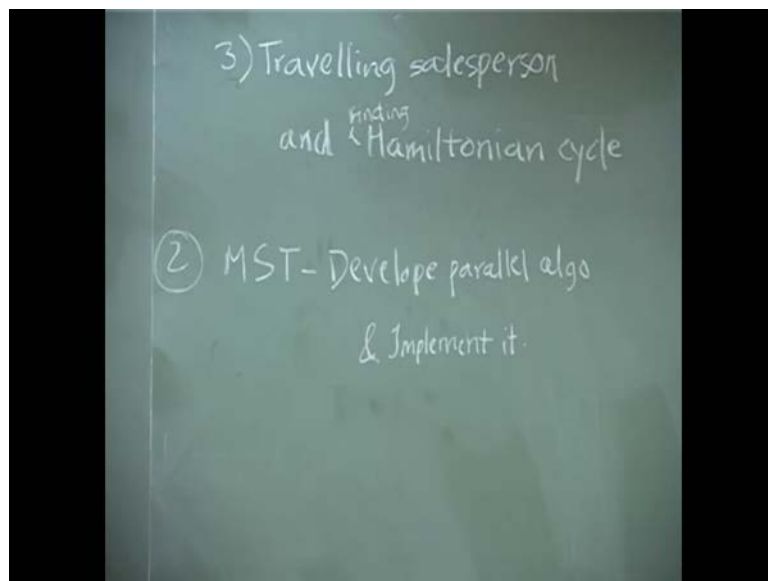 3) Travelling salesperson
and finding Hamiltonian cycle
2 MST - Develope parallel algo
& Implement it.